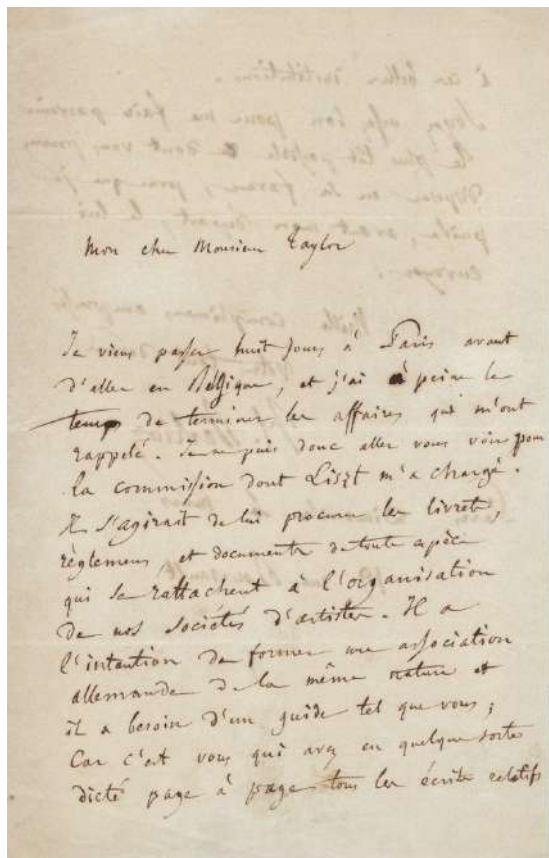 Mon cher Monsieur Taylor
Je viens passer huit jours à Paris avant
d'aller en Belgique, et j'ai à peine le
temps de terminer les affaires qui m'ont
rappelé. Je ne puis donc aller vous voir pour
la commission dont Liszt m'a chargé.
Il s'agirait de lui procurer les livrets,
règlemens et documents de toute espèce
qui se rattachent à l'organisation
de nos sociétés d'artistes. Il a
l'intention de former une association
allemande de la même nature et
il a besoin d'un guide tel que vous;
Car c'est vous qui avez en quelque sorte
dicté page à page tous les écrits relatifs